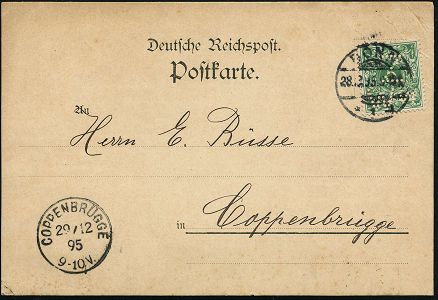 Deutsche Reichspost.
Postkarte.
An
Herrn E. Büsse
in Coppenbrügge
COPPENBRÜGGE
29/12
95
9-10V.